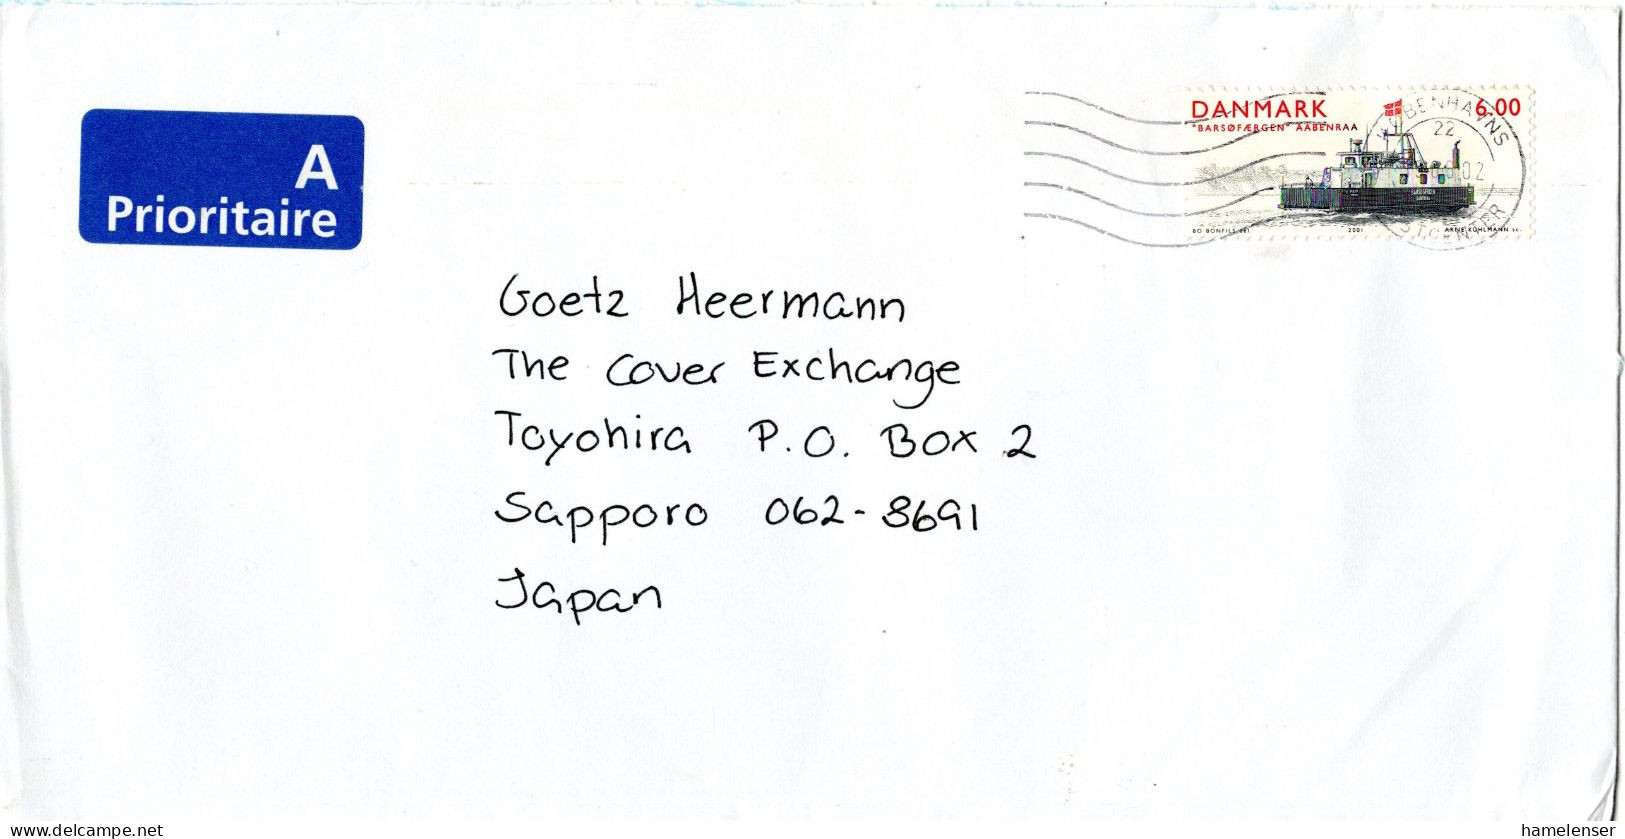 A
Prioritaire
DANMARK 6.00
"BARSØFÆRGEN" AABENRAA
KØBENHAVNS
22
02
POSTCENTER
BO BONFILS del. 2001 ARNE KÜHLMANN sc.
Goetz Heermann
The Cover Exchange
Toyohira P.O. Box 2
Sapporo 062-8691
Japan
www.delcampe.net
hamelenser